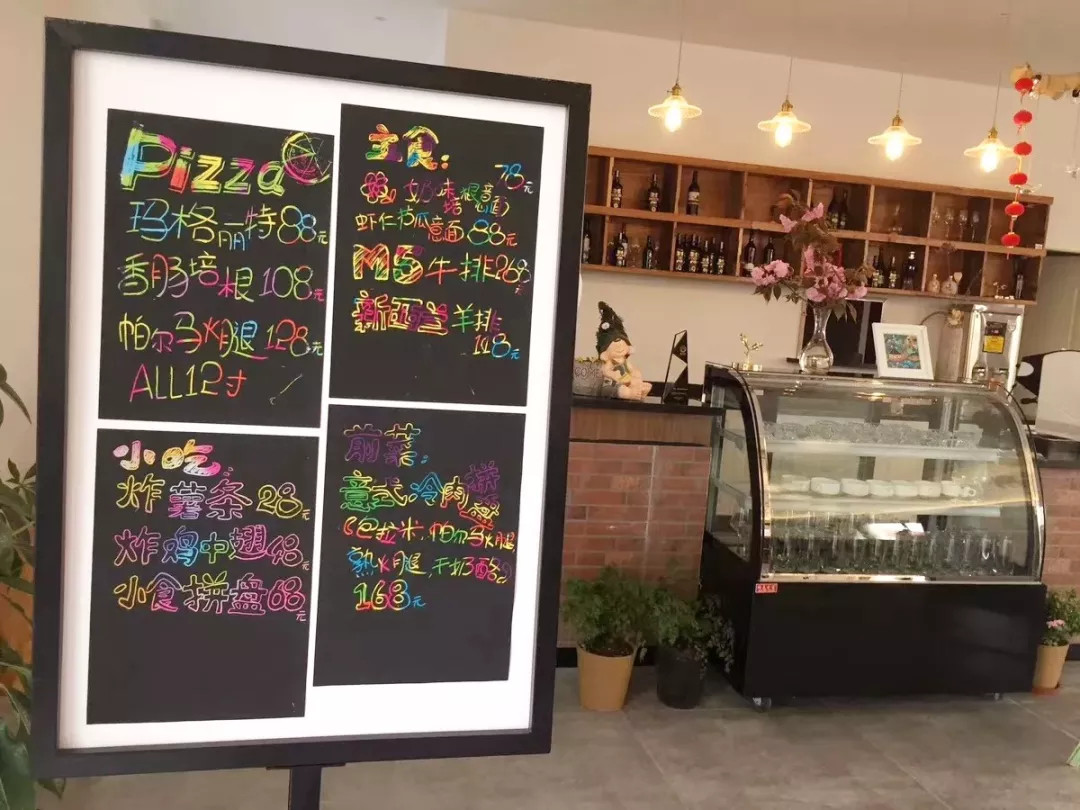 Pizza
玛格丽特88元
香肠培根108元
帕尔马火腿128元
ALL12寸
主食:
78元
奶味培根意面
虾仁南瓜意面88元
M5牛排268元
新西兰羊排
148元
小吃:
炸薯条28元
炸鸡中翅48元
小食拼盘68元
前菜:
意式冷肉拼
(巴拉米、帕尔马火腿,
熟火腿,干奶酪)
168元